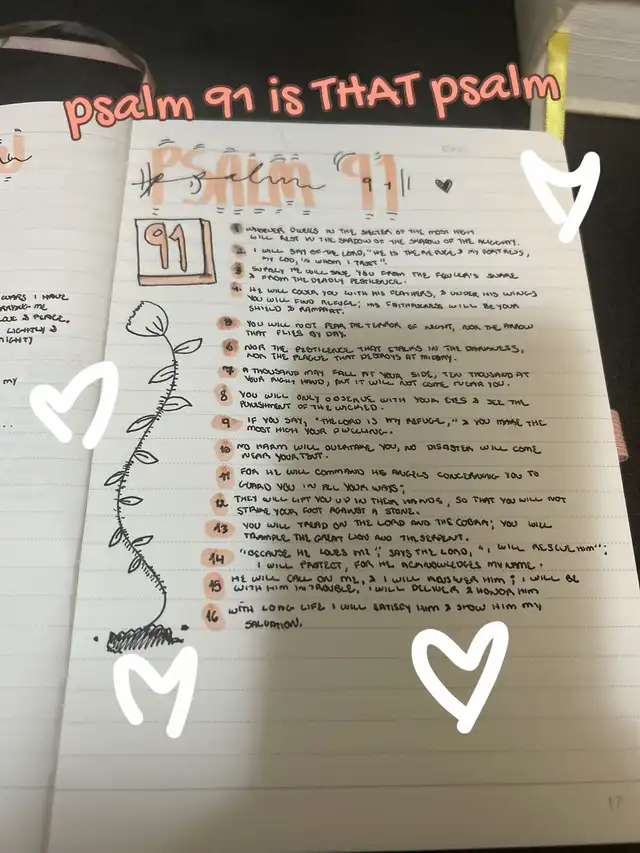 psalm 91 is THAT psalm
PSALM 91
psalm 91
91
1 WHOEVER DWELLS IN THE SHELTER OF THE MOST HIGH
WILL REST IN THE SHADOW OF THE SHADOW OF THE ALMIGHTY.
2 I WILL SAY OF THE LORD, "HE IS THE REFUGE & MY FORTRESS,
MY GOD, IN WHOM I TRUST".
3 SURELY HE WILL SAVE YOU FROM THE FOWLER'S SNARE
& FROM THE DEADLY PESTILENCE.
4 HE WILL COVER YOU WITH HIS FEATHERS, & UNDER HIS WINGS
YOU WILL FIND REFUGE; HIS FAITHFULNESS WILL BE YOUR
SHIELD & RAMPART.
5 YOU WILL NOT FEAR THE TERROR OF NIGHT, NOR THE ARROW
THAT FLIES BY DAY.
6 NOR THE PESTILENCE THAT STALKS IN THE DARKNESS,
NOR THE PLAGUE THAT DESTROYS AT MIDDAY.
7 A THOUSAND MAY FALL AT YOUR SIDE, TEN THOUSAND AT
YOUR RIGHT HAND, BUT IT WILL NOT COME NEAR YOU.
8 YOU WILL ONLY OBSERVE WITH YOUR EYES & SEE THE
PUNISHMENT OF THE WICKED.
9 IF YOU SAY, "THE LORD IS MY REFUGE," & YOU MAKE THE
MOST HIGH YOUR DWELLING.
10 NO HARM WILL OVERTAKE YOU, NO DISASTER WILL COME
NEAR YOUR TENT.
11 FOR HE WILL COMMAND HIS ANGELS CONCERNING YOU TO
GUARD YOU IN ALL YOUR WAYS;
12 THEY WILL LIFT YOU UP IN THEIR HANDS, SO THAT YOU WILL NOT
STRIKE YOUR FOOT AGAINST A STONE.
13 YOU WILL TREAD ON THE LORD AND THE COBRA; YOU WILL
TRAMPLE THE GREAT LION AND THE SERPENT.
14 "BECAUSE HE LOVES ME", SAYS THE LORD, "I WILL RESCUE HIM";
I WILL PROTECT, FOR HE ACKNOWLEDGES MY NAME.
15 HE WILL CALL ON ME, & I WILL ANSWER HIM; I WILL BE
WITH HIM IN TROUBLE, I WILL DELIVER & HONOR HIM
16 WITH LONG LIFE I WILL SATISFY HIM & SHOW HIM MY
SALVATION.
17
I HAVE
ME
& PEACE,
LIGHTLY &
MY